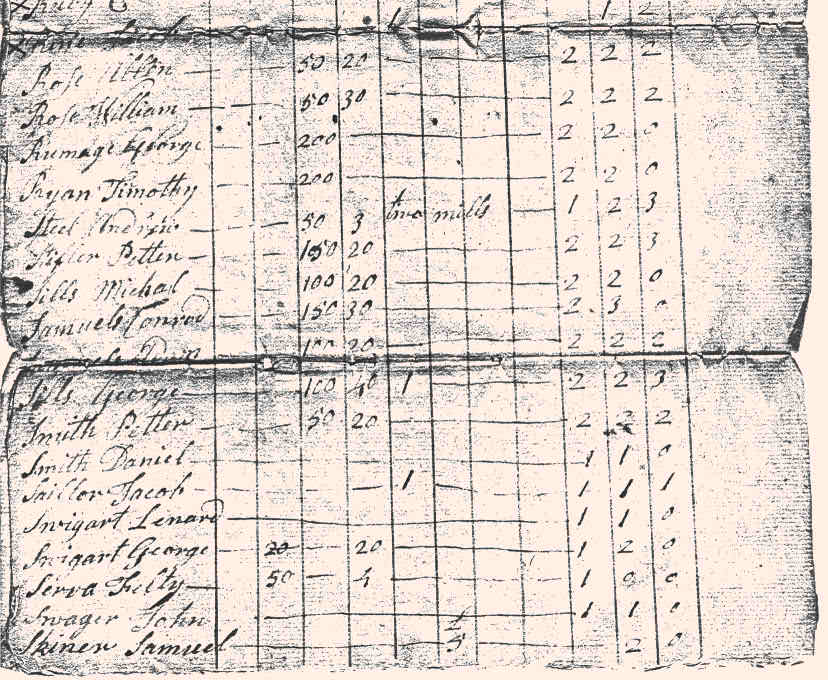 1 1 2
Rose 50 20 2 2 2
Rose William 50 30 2 2 2
Rumage George 200 2 2 0
Ryan Timothy 200 2 2 0
Steel Andrew 50 3 two mills 1 2 3
Petter 150 20 2 2 3
Sills Michal 100 20 2 2 0
Samuels Conrod 150 30 2 3 0
100 20 2 2 2
Sils George 100 40 1 2 2 3
Smith Petter 50 20 2 2 2
Smith Daniel 1 1 0
Saillor Jacob 1 1 1 1
Swigart Lenard 1 1 0
Swigart George 20 20 1 2 0
Serva Felty 50 4 1 0 0
Swager John 1 1 0
Skiner Samuel 5 2 0